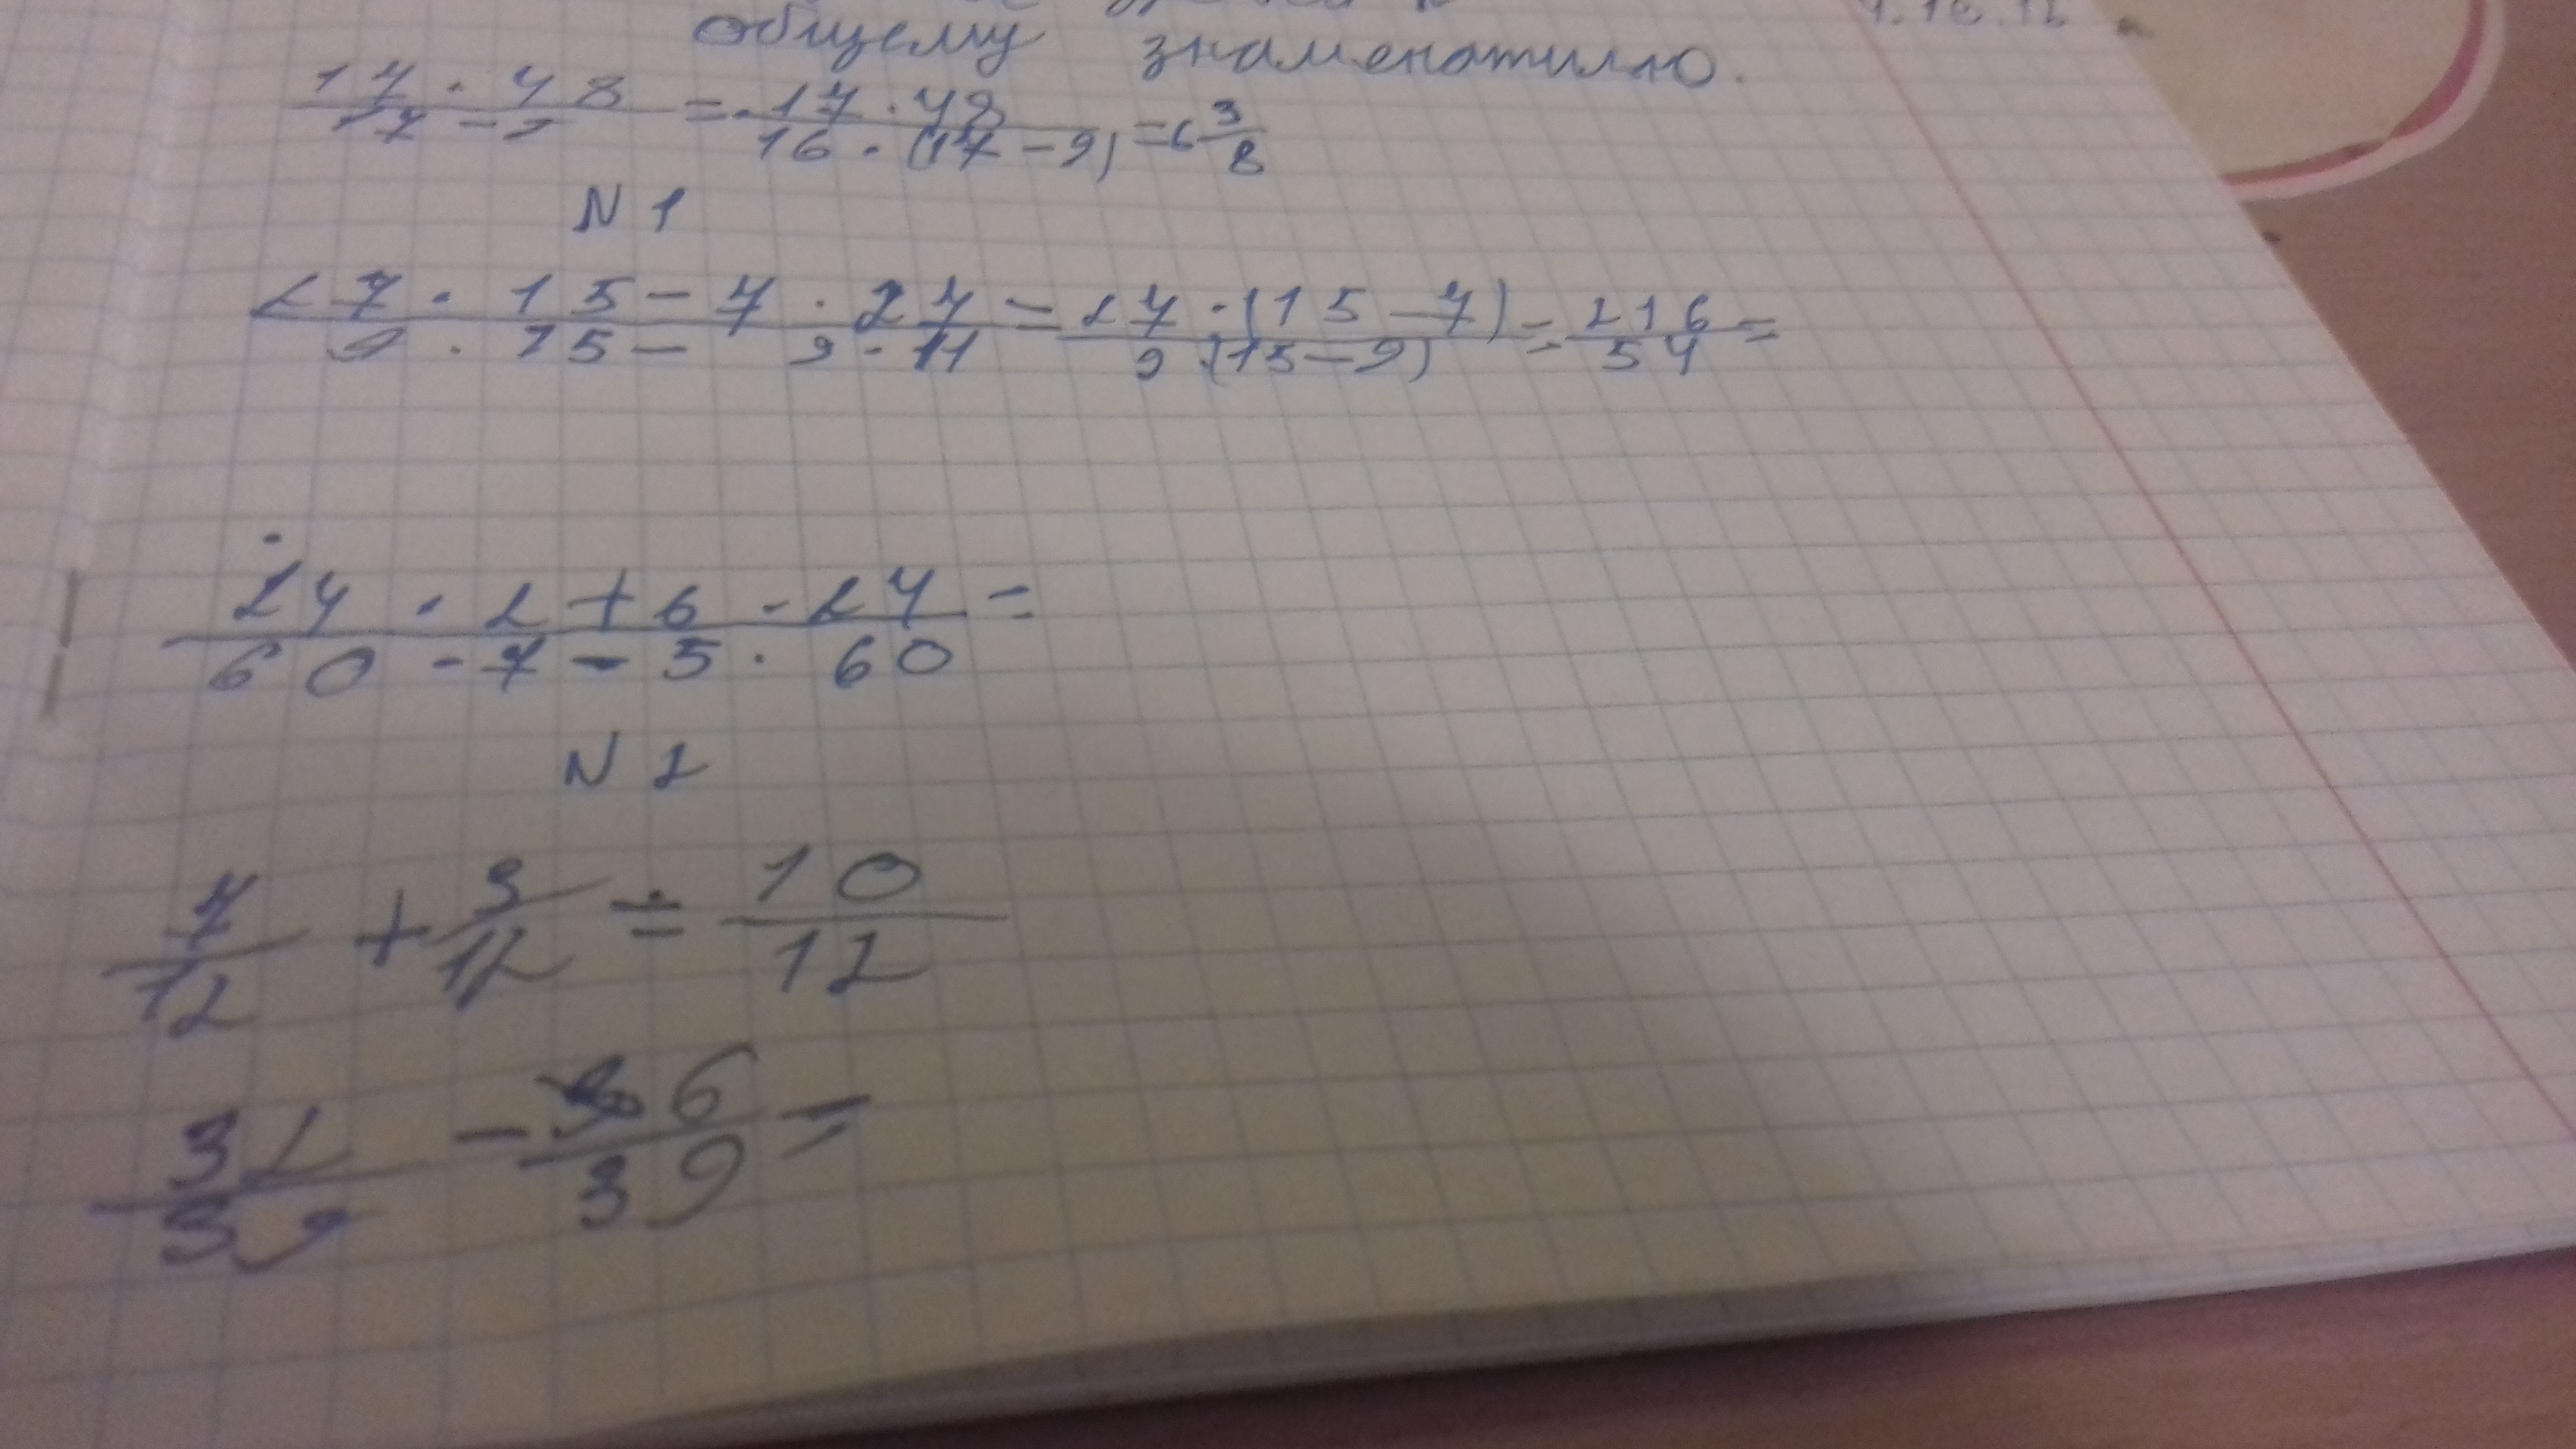 общему знаменателю.
17 · 48 / 17 - 9 = 17 · 48 / 16 · (17 - 9) = 6 3/8
N 1
27 · 15 - 7 · 27 / 9 · 15 - 9 · 11 = 27 · (15 - 7) / 9 · (15 - 9) = 216 / 54 =
24 · 2 + 6 · 24 / 60 · 7 - 5 · 60 =
N 2
7/12 + 3/12 = 10/12
32/39 - 6/39 =